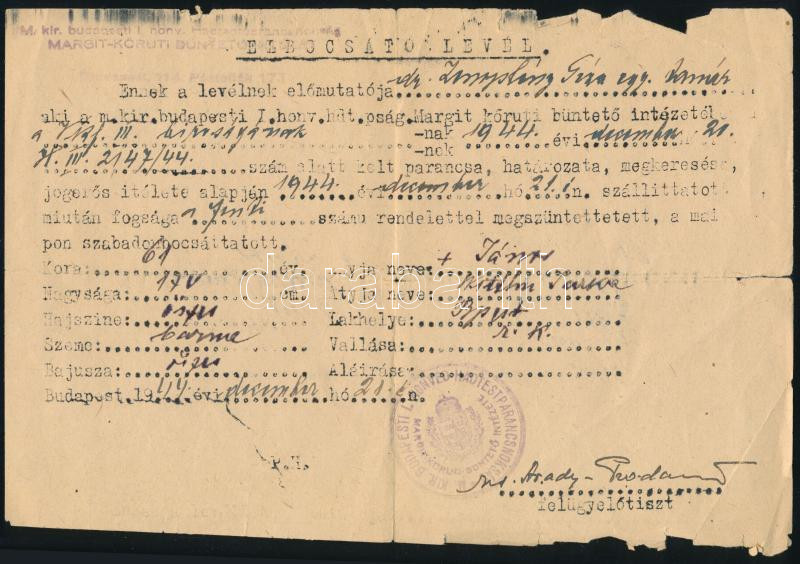 M. kir. budapesti I. honv. Hadtestparancsnokság
MARGIT-KÖRUTI BÜNTETŐ
ELBOCSÁTÓ LEVÉL.
Ennek a levélnek előmutatója dr. Zemplény Géza egy. tanár
aki a m.kir.budapesti I.honv.hdt.pság.Margit kőruti büntető intézetéb
a VKF. III. biróságának -nak -nek 1944 évi december 21.
H. III. 2147/44. szám alatt kelt parancsa, határozata, megkeresése,
jogerős itélete alapján 1944. évi december hó 21.én. szállittatot
miután fogsága a fenti számu rendelettel megszüntettetett, a mai
pon szabadonbocsáttatott.
Kora: 61 év. Atyja neve: + János
Nagysága: 170 cm. Atyja neve:
Hajszine: ősz Lakhelye: Bpest
Szeme: barna Vallása: r. k.
Bajusza: ősz Aláirása:
Budapest 1944 évi december hó 21.én.
P.H.
M. KIR. BUDAPESTI I. HONVÉD HADTESTPARANCSNOKSÁG
MARGIT-KÖRUTI BÜNTETŐ INTÉZETE
felügyelőtiszt
darabanth